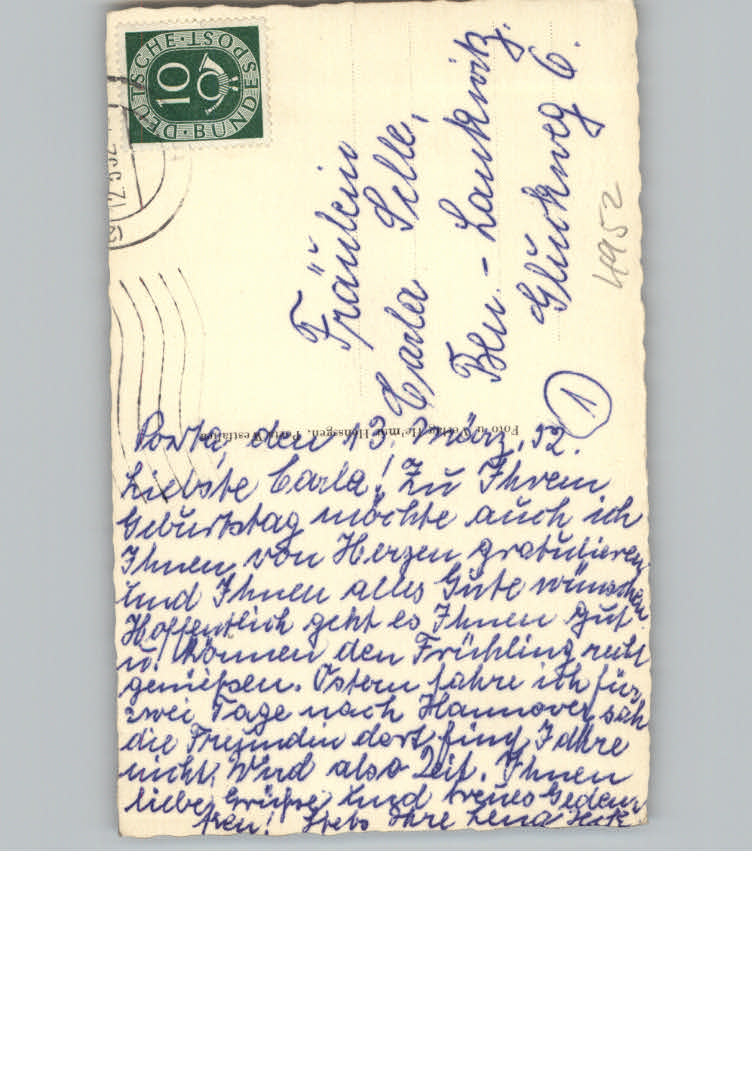 DEUTSCHE BUNDESPOST
10
Fräulein
Carla Selle,
Bln.-Lankwitz.
Gluckweg 6.
4952
1
Foto u. Verlag Helmut Hönsagen, Porta Westfalen
Porta, den 13. März, 52.
Liebste Carla! Zu Ihrem
Geburtstag möchte auch ich
Ihnen von Herzen gratulieren
und Ihnen alles Gute wünschen
Hoffentlich geht es Ihnen gut
u. können den Frühling recht
genießen. Ostern fahre ich für
zwei Tage nach Hannover, sah
die Freundin dort fünf Jahre
nicht. Wird also Zeit. Ihnen
liebe Grüße und treues Geden
ken! Stets Ihre